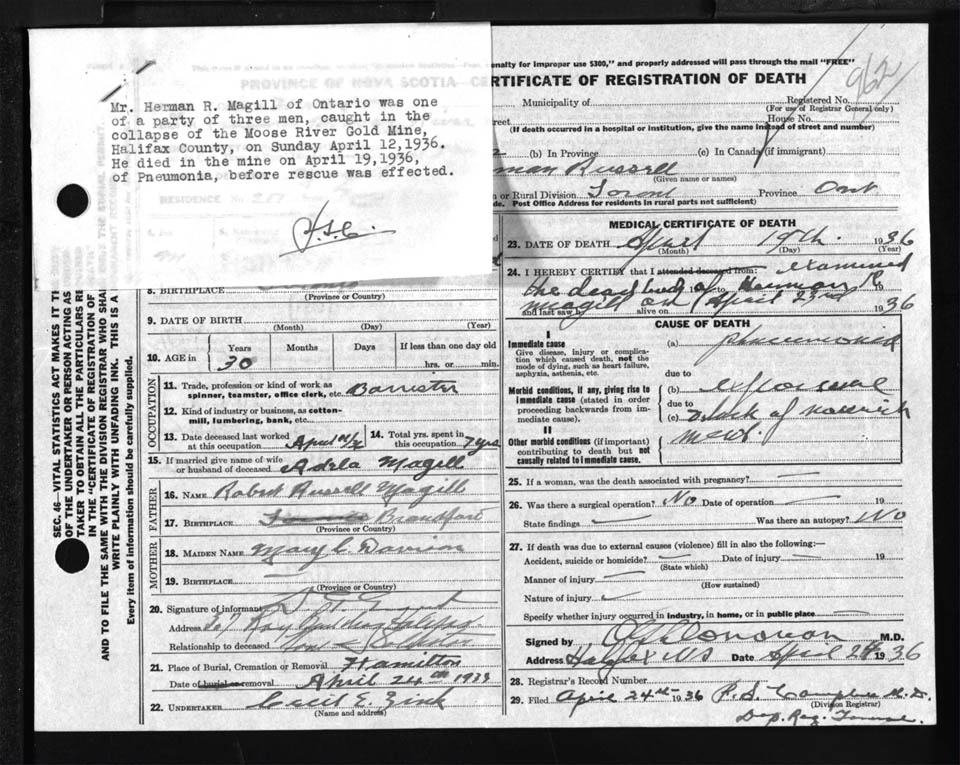 Mr. Herman R. Magill of Ontario was one
of a party of three men, caught in the
collapse of the Moose River Gold Mine,
Halifax County, on Sunday April 12,1936.
He died in the mine on April 19,1936,
of Pneumonia, before rescue was effected.
PROVINCE OF NOVA SCOTIA
RESIDENCE No.
SEC. 46—VITAL STATISTICS ACT MAKES IT
OF THE UNDERTAKER OR PERSON ACTING AS
TAKER TO OBTAIN ALL THE PARTICULARS RE
IN THE "CERTIFICATE OF REGISTRATION OF
AND TO FILE THE SAME WITH THE DIVISION REGISTRAR WHO SHA
WRITE PLAINLY WITH UNFADING INK. THIS IS A
Every item of information should be carefully supplied.
8. BIRTHPLACE
(Province or Country)
9. DATE OF BIRTH
(Month) (Day) (Year)
10. AGE in
Years Months Days If less than one day old
30 hrs. or min.
OCCUPATION
11. Trade, profession or kind of work as
spinner, teamster, office clerk, etc. Barrister
12. Kind of industry or business, as cotton-
mill, lumbering, bank, etc.
13. Date deceased last worked
at this occupation April 14. Total yrs. spent in
this occupation 7 yrs
15. If married give name of wife
or husband of deceased Adela Magill
FATHER
16. NAME Robert Russell Magill
17. BIRTHPLACE Brantford
(Province or Country)
MOTHER
18. MAIDEN NAME Mary
19. BIRTHPLACE
(Province or Country)
20. Signature of informant
Address Roy Building Halifax
Relationship to deceased None Solicitor
21. Place of Burial, Cremation or Removal Hamilton
Date of burial or removal April 24th
22. UNDERTAKER Cecil E. Zink
(Name and address)
enalty for improper use $300," and properly addressed will pass through the mail "FREE"
CERTIFICATE OF REGISTRATION OF DEATH
962
Municipality of Registered No.
(For use of Registrar General only)
reet House No.
(If death occurred in a hospital or institution, give the name instead of street and number)
(b) In Province (c) In Canada (if immigrant)
man Russell
(Given name or names)
n or Rural Division Toront Province Ont
de. Post Office Address for residents in rural parts not sufficient)
MEDICAL CERTIFICATE OF DEATH
23. DATE OF DEATH April 19th 1936
(Month) (Day) (Year)
24. I HEREBY CERTIFY that I attended deceased from: examined
the dead body of Herman R
and last saw alive on Magill on April 23rd 1936
CAUSE OF DEATH
I
Immediate cause
Give disease, injury or complica-
tion which caused death, not the
mode of dying, such as heart failure,
asphyxia, asthenia, etc.
(a) pneumonia
due to
Morbid conditions, if any, giving rise to
immediate cause (stated in order
proceeding backwards from im-
mediate cause).
(b) exposure
due to
(c) lack of nourish
ment.
II
Other morbid conditions (if important)
contributing to death but not
causally related to immediate cause.
25. If a woman, was the death associated with pregnancy?
26. Was there a surgical operation? No Date of operation 19
State findings Was there an autopsy? No
27. If death was due to external causes (violence) fill in also the following:—
Accident, suicide or homicide? Date of injury 19
(State which)
Manner of injury
(How sustained)
Nature of injury
Specify whether injury occurred in industry, in home, or in public place
Signed by Donovan M.D.
Address Halifax NS Date April 24 1936
28. Registrar's Record Number
29. Filed April 24th 1936 P. S. Campbell M.D.
(Division Registrar)
Dep. Reg.